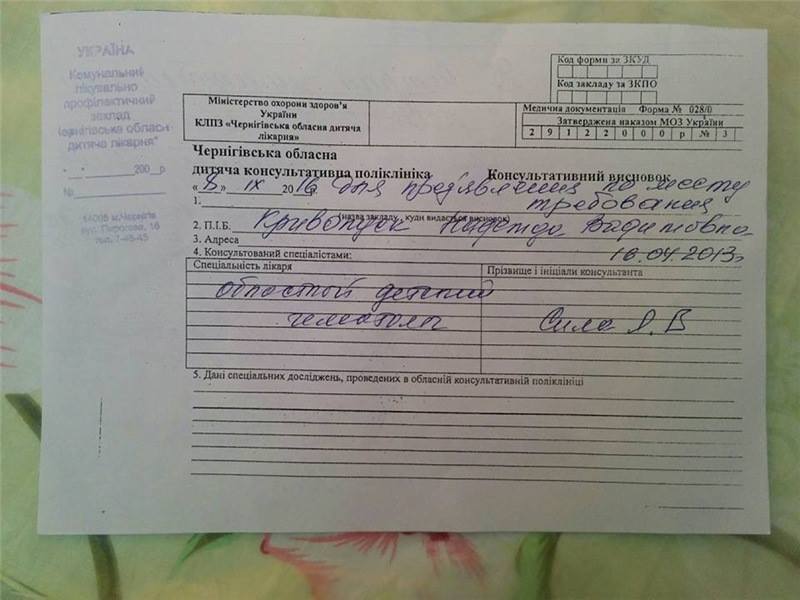 УКРАЇНА
Комунальний
лікувально
профілактичний
заклад
Чернігівська обласна
дитяча лікарня"
"__"________200__р
№________
14005 м.Чернігів
вул. Пирогова, 16
тел. 7-45-45
Код форми за ЗКУД
Код закладу за ЗКПО
Міністерство охорони здоров'я
України
КЛПЗ «Чернігівська обласна дитяча
лікарня»
Медична документація Форма № 028/0
Затверджена наказом МОЗ України
2 9 1 2 2 0 0 0 р № 3
Чернігівська обласна
дитяча консультативна поліклініка Консультативний висновок
«8» IX 2016 р. для предъявления по месту
1. требования
(назва закладу, куди видається висновок)
2. П.І.Б. Кривопуск Надежда Вадимовна
3. Адреса 16.04.2013г
4. Консультований спеціалістами:
Спеціальність лікаря Прізвище і ініціали консультанта
областной детский
гематолог Сила Л.В
5. Дані спеціальних досліджень, проведених в обласній консультативній поліклініці